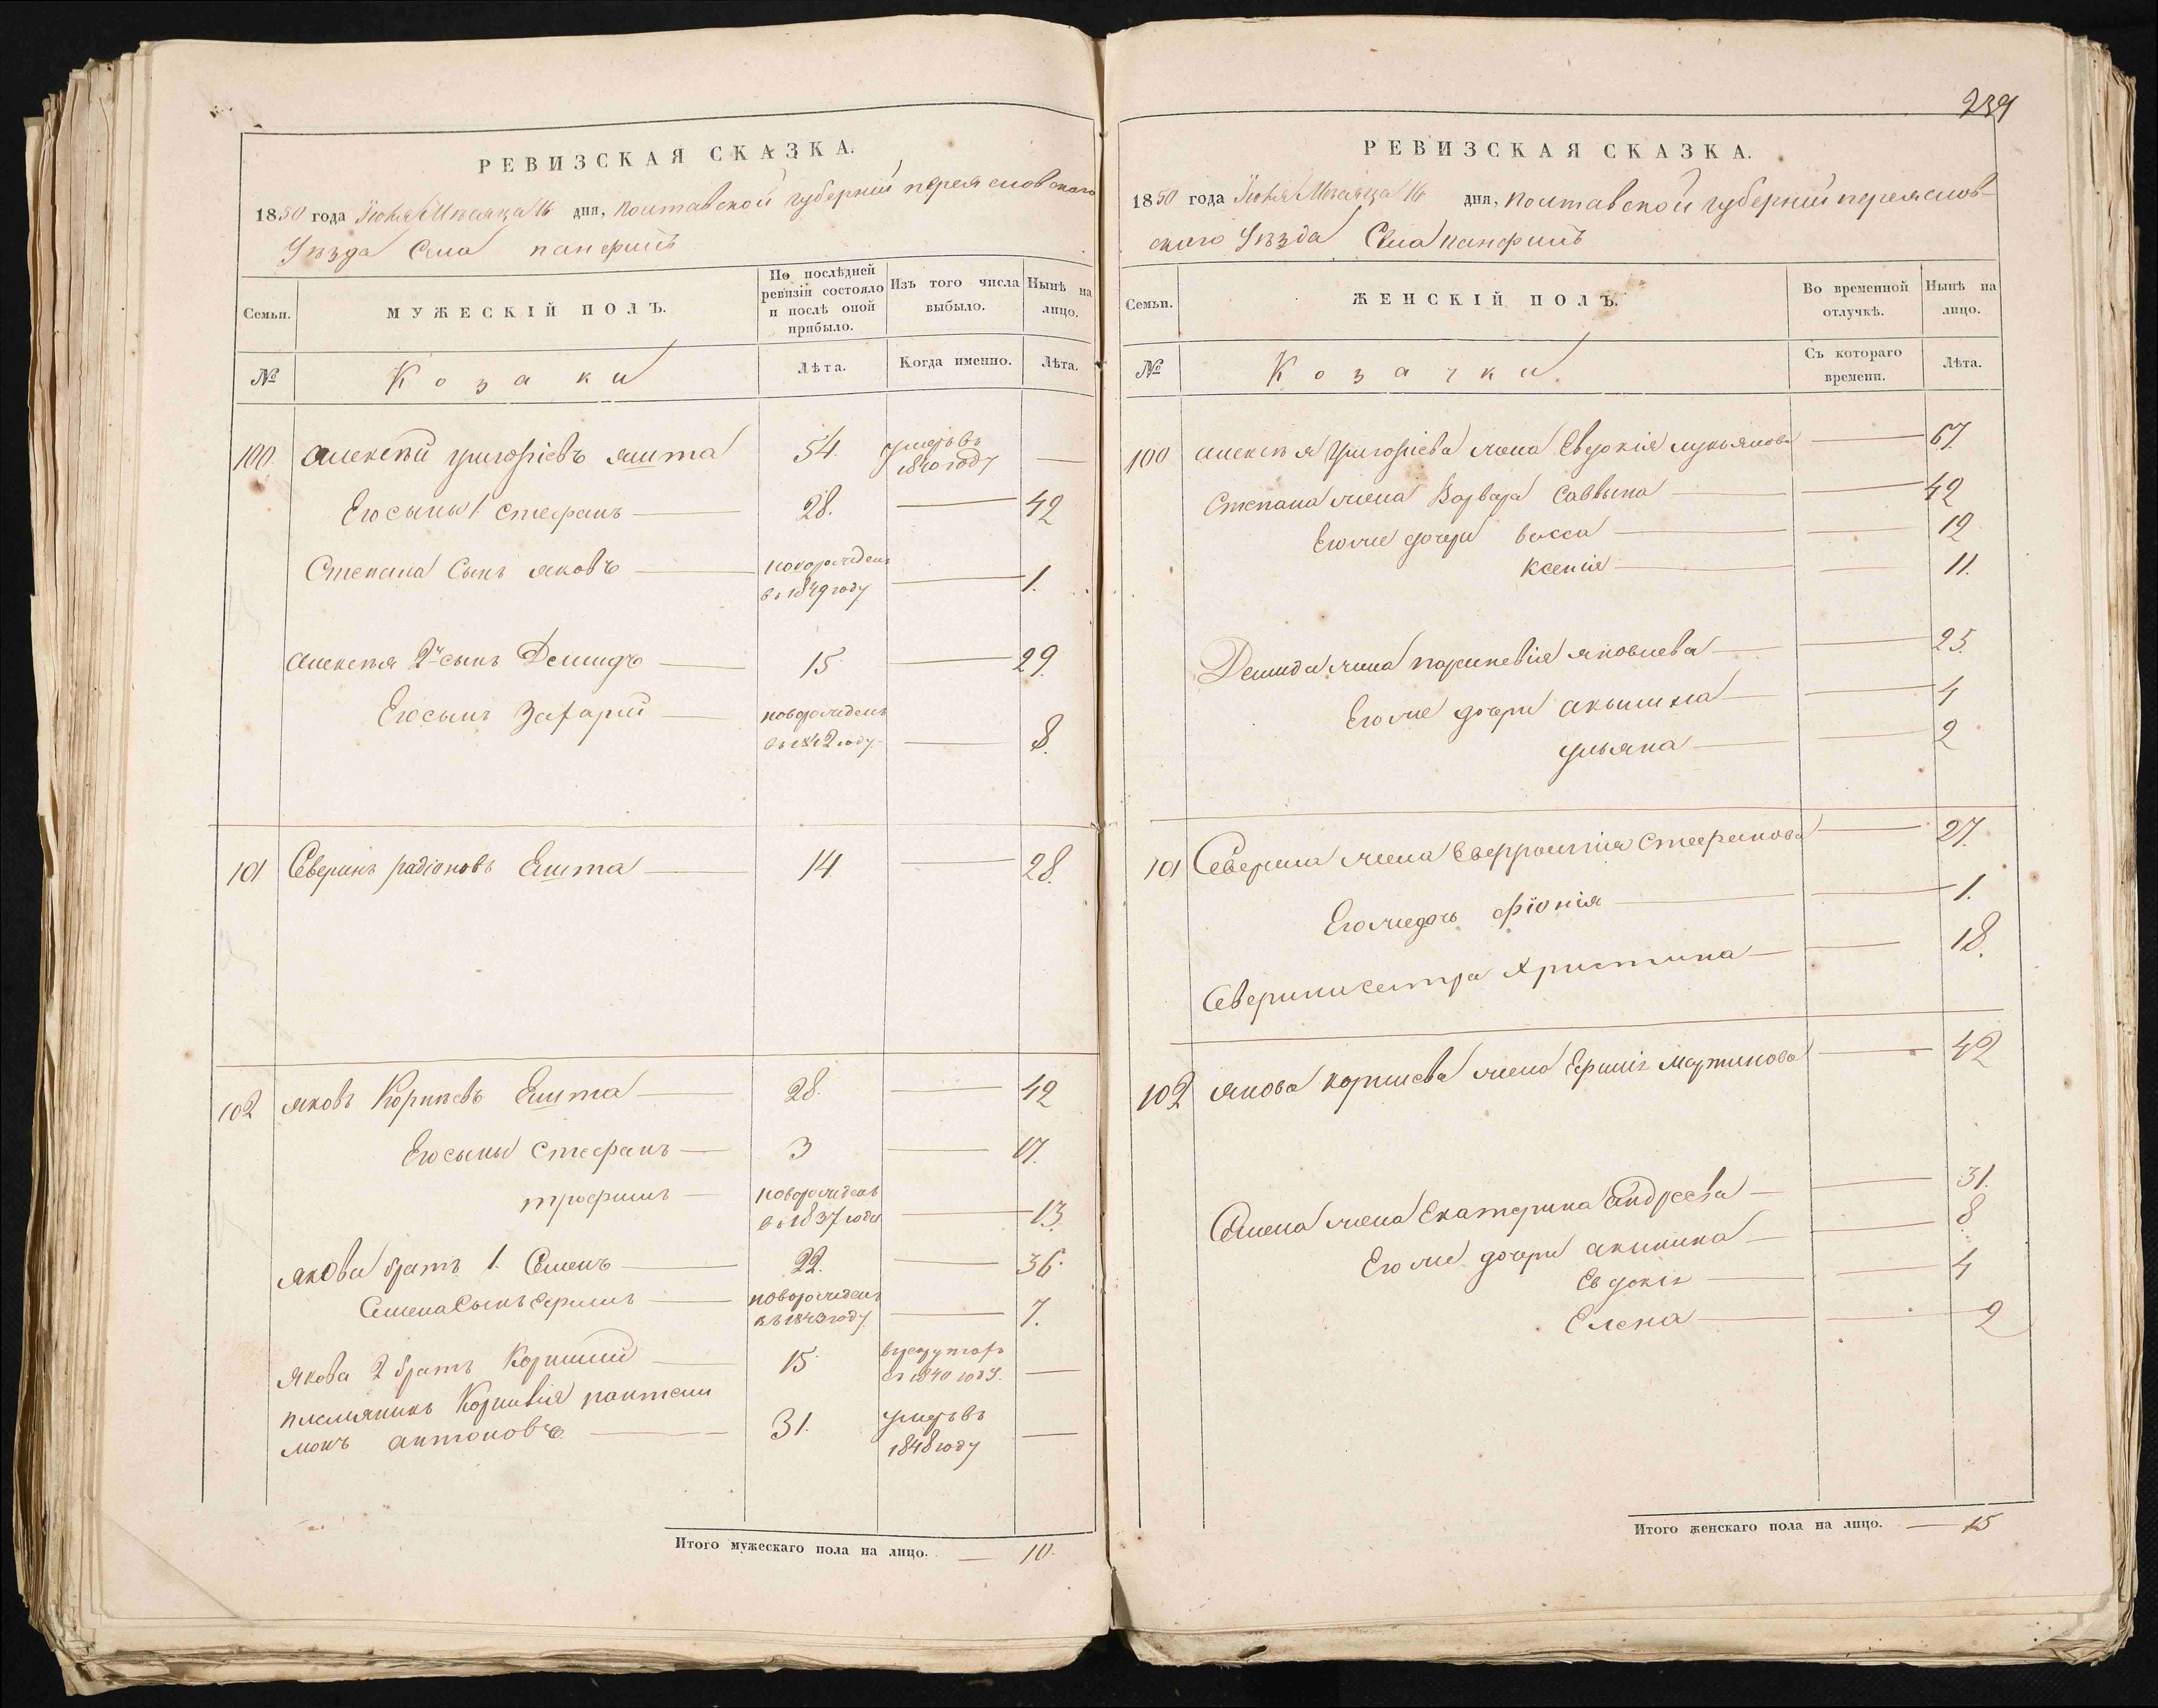 РЕВИЗСКАЯ СКАЗКА.
1850 года Іюня Мѣсяца 16 дня, полтавской губерніи переясловского
Уѣзда Села панфилъ
Семьи.
МУЖЕСКІЙ ПОЛЪ.
По послѣдней ревизіи состояло и послѣ оной прибыло.
Изъ того числа выбыло.
Нынѣ на лицо.
№
Козаки
Лѣта.
Когда именно.
Лѣта.
100 алексѣй григоріевъ яшта 54. умеръ въ 1840 году —
Его сыны 1. стефанъ — 28. — 42
Степана Сынъ яковъ — новорожденъ въ 1849 году — 1.
алексѣя 2й сынъ Демидъ — 15 — 29.
Его сынъ Захарій — новорожденъ въ 1842 году — 8.
101 Северинъ радіоновъ Яшта — 14 — 28.
102 яковъ Корніевъ Яшта — 28. — 42
Его сыны стефанъ — 3 — 17.
трофимъ — новорожденъ въ 1837 года — 13.
якова братъ 1. Семенъ — 22. — 36.
Семена Сынъ ефимъ — новорожденъ въ 1843 году — 7.
Якова 2 братъ Корнилій — 15. в рекруты съ 1840 году. —
племянникъ Корнилія пантели
монъ антоновъ — 31. умеръ въ 1848 году —
Итого мужескаго пола на лицо. — 10.
239
РЕВИЗСКАЯ СКАЗКА.
1850 года Іюня Мѣсяца 16 дня, полтавской губерніи переяслов-
ского Уѣзда Села панфилъ
Семьи.
ЖЕНСКІЙ ПОЛЪ.
Во временной отлучкѣ.
Нынѣ на лицо.
№
Козачки.
Съ котораго времени.
Лѣта.
100 алексѣя Григоріева жена Евдокія лукьянова — 67.
Степана жена Варвара Саввына — 42
Его же дочери васса — 12
Ксенія — 11.
Демида жена параскевія яковлева — 25.
Его же дочери акылина — 4
ульяна — 2
101 Северина жена Евфросинія стефанова — 27.
Его же дочь фіонія — 1.
Северина сестра Христина — 18.
102 якова корніева жена Ефимія Мартинова — 42
Семена жена Екатерина Андреева — 31.
Его же дочери акилина — 8.
Евдокія — 4
Елена — 2
Итого женскаго пола на лицо. — 15